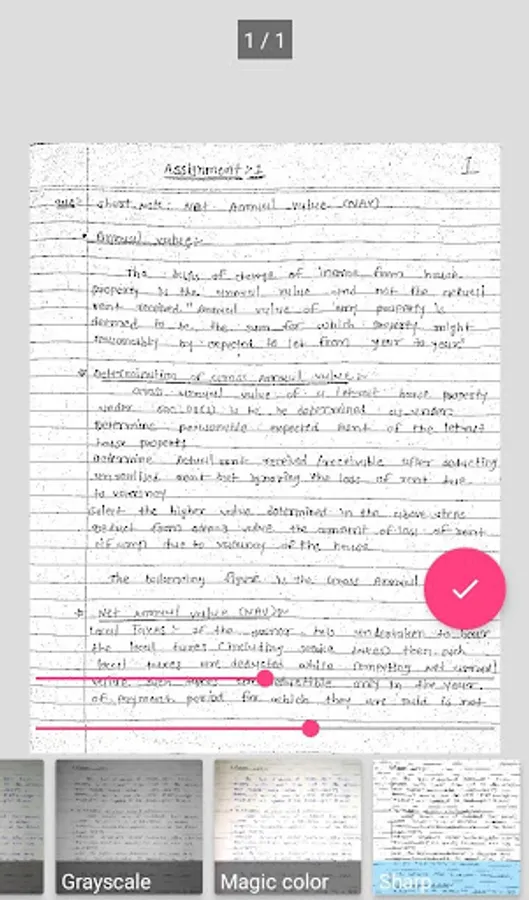 1 / 1
Assignment :- 1
1
Short note: Net Annual Value (NAV)
Annual value:-
The basis of charge of income from house
property is the annual value and not the actual
rent received. "Annual value of any property is
deemed to be the sum for which property might
reasonably be expected to let from year to year"
Determination of Gross Annual value :-
Gross annual value of a letout house property
under is to be determined as under:
Determine reasonable expected rent of the letout
house property
Determine Actual rent received/receivable after deducting
unrealised rent but ignoring the loss of rent due
to vacancy
Select the higher value determined in the above steps
Deduct from value the amount of loss of rent
due to vacancy of the house
The figure is the Gross Annual
Net annual value (NAV):-
Local Taxes :- If the owner has undertaken to
the local taxes (including service taxes) then such
local taxes are deducted while computing net annual
value such taxes deductible only in the year
of payment period for which they are paid is not
Grayscale
Magic color
Sharp